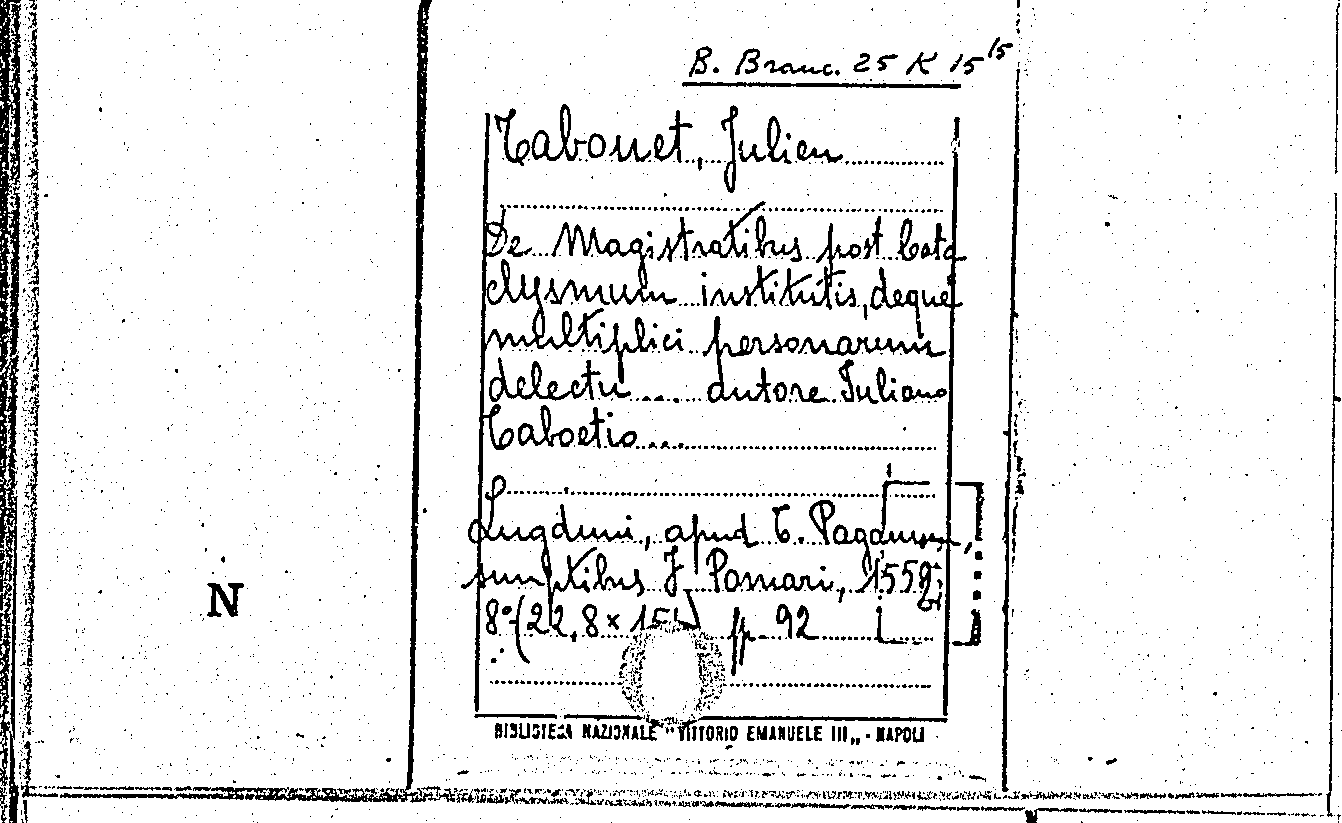 B. Branc. 25 K 15 15
Tabouet, Julien
De Magistratibus post cata
clysmum institutis, deque
multiplici personarum
delectu ... autore Iuliano
Taboetio...
Lugduni, apud T. Paganum,
sumptibus J. Pomari, 1559.
8° (22,8 × 15 pp. 92
N
BIBLIOTECA NAZIONALE "VITTORIO EMANUELE III„ - NAPOLI